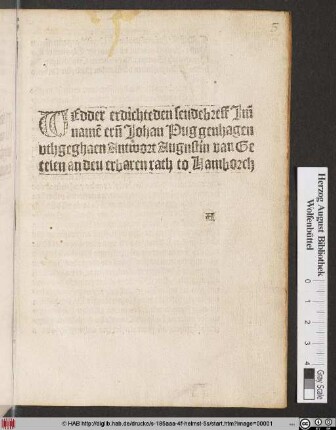 5
WEdder erdichteden sendebreff Im̄
namē ern̄ Johan Puggenhagen
vthgeghaen Antwort Augustin van Ge
telen an den erbaren rath to Hamborch
Herzog August Bibliothek
Wolfenbüttel
0 1 2 3 4
Gray Scale
© HAB http://diglib.hab.de/drucke/s-185aaa-4f-helmst-5s/start.htm?image=00001